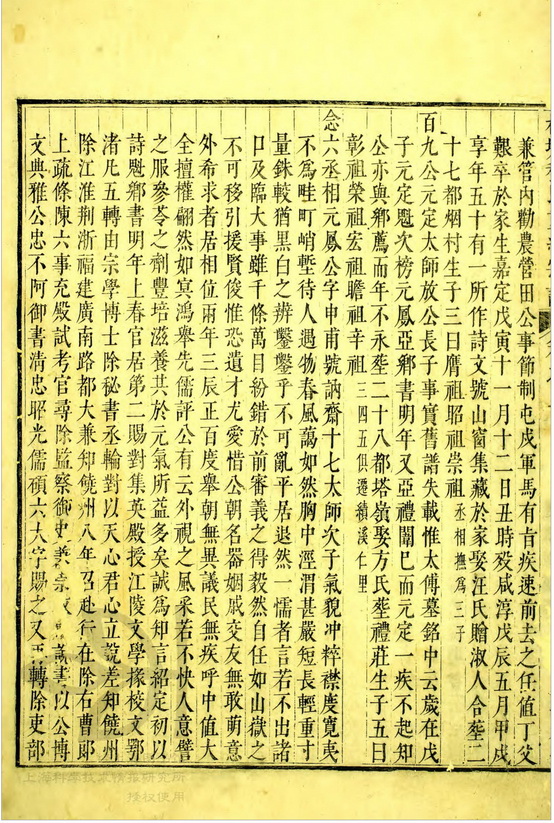 兼管內勸農營田公事節制屯戍軍馬有旨疾速前去之任值丁父
艱卒於家生嘉定戊寅十一月十二日丑時歿咸淳戊辰五月甲戌
享年五十有一所作詩文號山窗集藏於家娶汪氏贈淑人合塟二
十七都烟村生子三曰膺祖昭祖崇祖丞相撫為三子
百九公元定太師放公長子事實舊譜失載惟太傅墓銘中云歲在戊
子元定魁次榜元鳳亞鄉書明年又亞禮闈已而元定一疾不起知
公亦與鄉薦而年不永塟二十八都塔嶺娶方氏塟禮莊生子五曰
彰祖榮祖宏祖瞻祖辛祖三四五俱遷績溪仁里
念六丞相元鳳公字申甫號訥齋十七太師次子氣貌冲粹襟度寬夷
不為畦町峭塹待人遇物春風藹如然胸中涇渭甚嚴短長輕重寸
量銖較猶黑白之辨鑿鑿乎不可亂平居退然一懦者言若不出諸
口及臨大事雖千條萬目紛錯於前審義之得毅然自任如山嶽之
不可移引援賢俊惟恐遺才尤愛惜公朝名器姻戚交友無敢萌意
外希求者居相位兩年三辰正百度舉朝無異議民無疾呼中值大
全擅權翩然如冥鴻舉先儒評公有云外視之風采若不快人意譬
之服參苓之劑豐培滋養其於元氣所益多矣誠為知言紹定初以
詩魁鄉書明年上春官居第二賜對集英殿授江陵文學掾校文鄂
渚凡五轉由宗學博士除秘書丞輪對以天心君心立說差知饒州
除江淮荆浙福建廣南路都大兼知饒州八年召赴行在除右曹郎
上疏條陳六事充殿試考官尋除監察御史兼崇 說書以公博
文典雅公忠不阿御書清忠昭光儒碩六大字賜之又 轉除吏部
上海科學技術情報研究所
授权使用